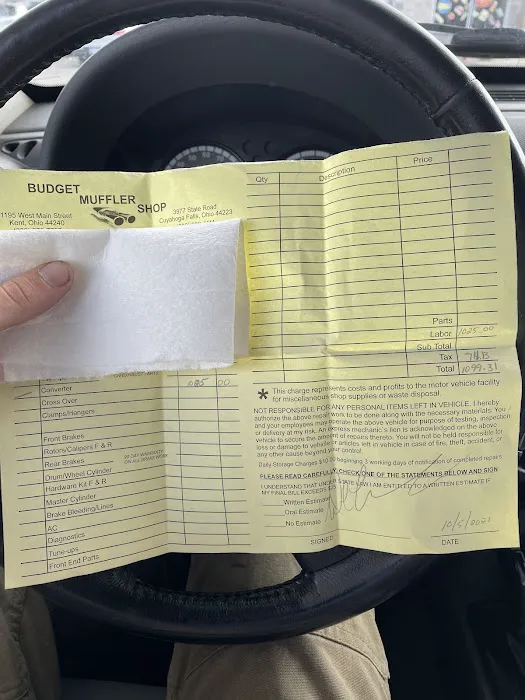 BUDGET
MUFFLER
SHOP
1195 West Main Street
Kent, Ohio 44240
3977 State Road
Cuyahoga Falls, Ohio 44223
Qty Description Price
Parts
Labor 1025.00
Sub Total
Tax
Total 1099.31
Converter 1025 00
Cross Over
Clamps/Hangers
Front Brakes
Rotors/Calipers F & R
Rear Brakes
Drum/Wheel Cylinder
Hardware Kit F & R
Master Cylinder
Brake Bleeding/Lines
AC
Diagnostics
Tune-ups
Front End Parts
90 DAY WARRANTY
ON ALL BRAKE WORK
* This charge represents costs and profits to the motor vehicle facility
for miscellaneous shop supplies or waste disposal.
NOT RESPONSIBLE FOR ANY PERSONAL ITEMS LEFT IN VEHICLE. I hereby
authorize the above repair work to be done along with the necessary materials. You
and your employees may operate the above vehicle for purpose of testing, inspection
or delivery at my risk. An express mechanic's lien is acknowledged on the above
vehicle to secure the amount of repairs thereto. You will not be held responsible for
loss or damage to vehicle or articles left in vehicle in case of fire, theft, accident, or
any other cause beyond your control.
Daily Storage Charges $10.00 beginning 3 working days of notification of completed repairs
PLEASE READ CAREFULLY, CHECK ONE OF THE STATEMENTS BELOW AND SIGN
I UNDERSTAND THAT UNDER STATE LAW I AM ENTITLED TO A WRITTEN ESTIMATE IF
MY FINAL BILL EXCEEDS
Written Estimate
Oral Estimate
No Estimate
SIGNED
DATE